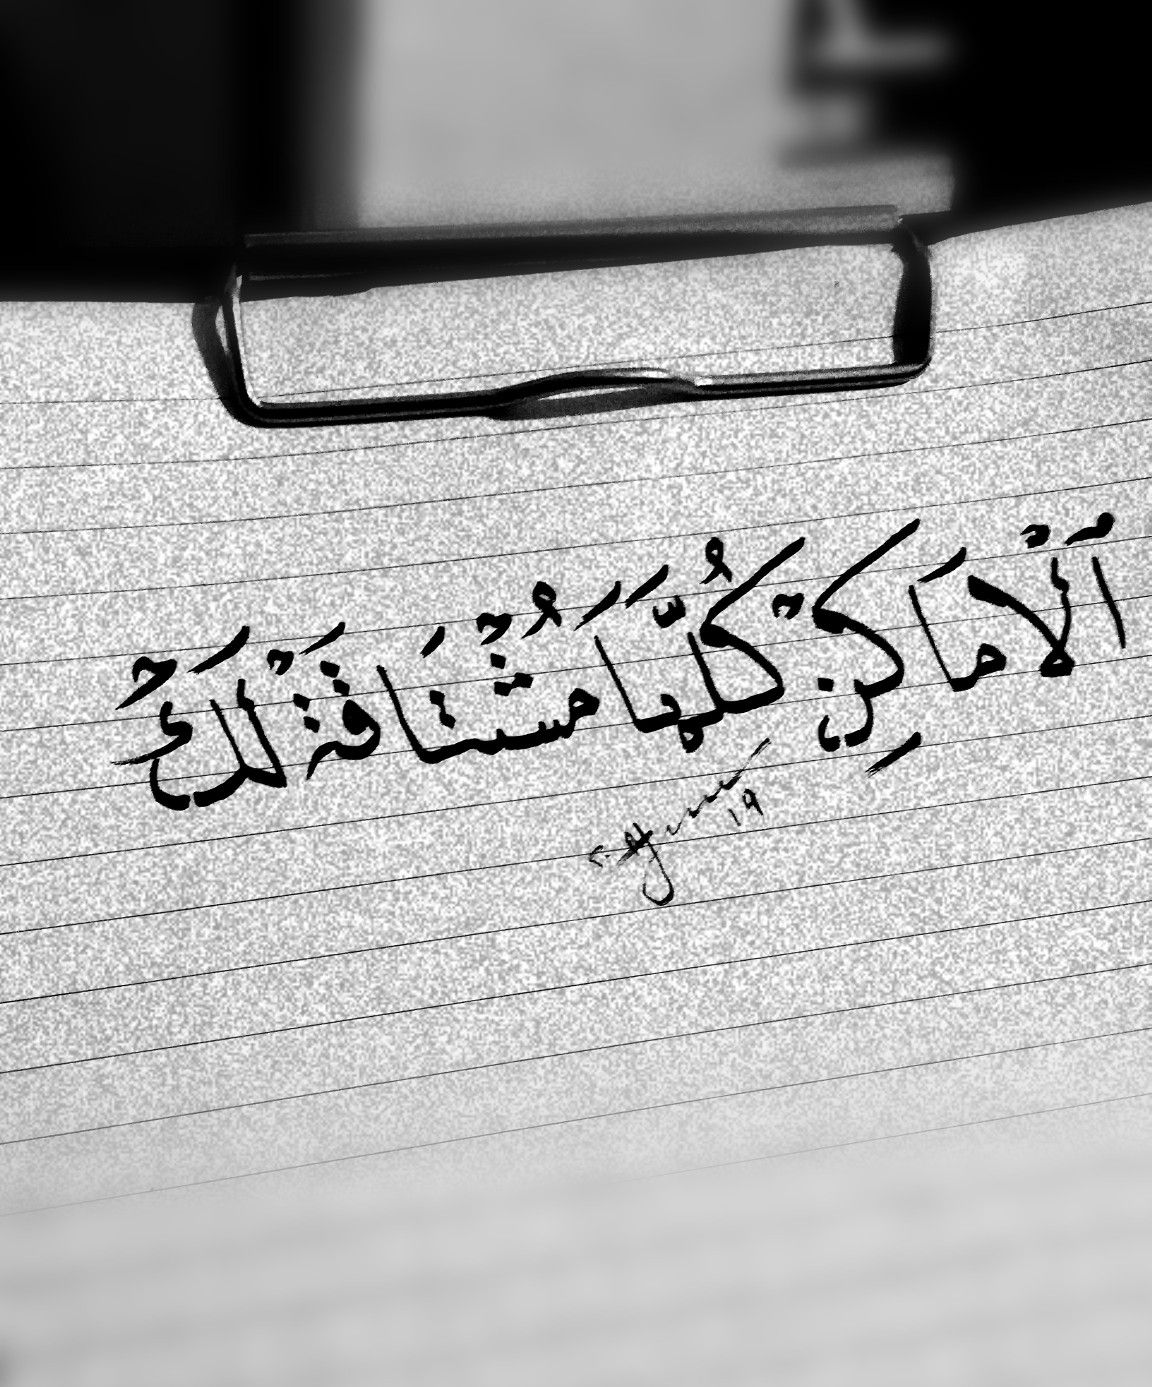 ٱلْأَمَاكِنْ كُلَّهَا مُشْتَاقَةْ لَكْ
19